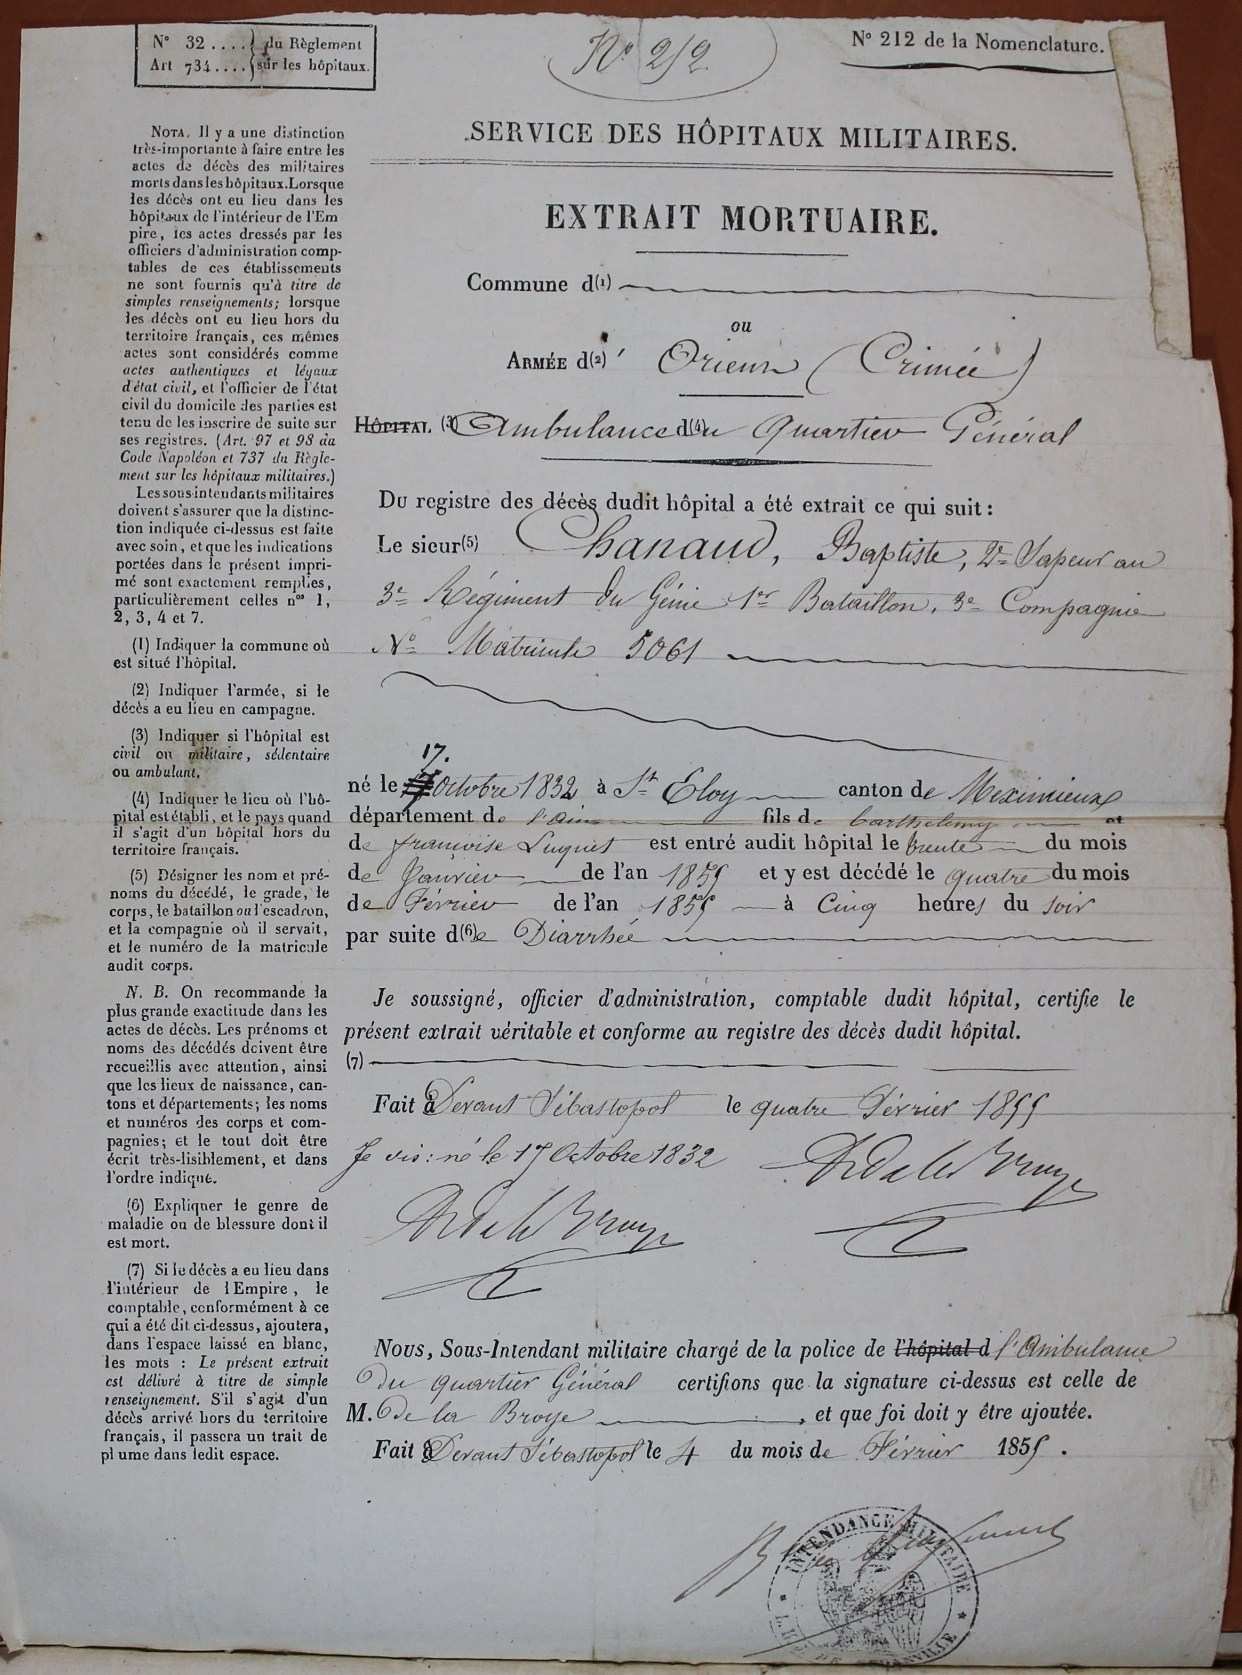 N° 32 .... } du Règlement
Art 734 .... } sur les hôpitaux.
N° 212
N° 212 de la Nomenclature.
SERVICE DES HÔPITAUX MILITAIRES.
EXTRAIT MORTUAIRE.
Commune d(1)
ou
ARMÉE d(2)' Orient (Crimée)
HÔPITAL (3) Ambulance d(4)u quartier Général
Du registre des décès dudit hôpital a été extrait ce qui suit :
Le sieur(5) Chanaud, Baptiste, 2e Sapeur au
3e Régiment du Génie 1er Bataillon, 3e Compagnie
No Matricule 5061
17.
né le 17 octobre 1832 à St Eloy canton de Meximieux
département de l'ain fils de barthelemy et
de françoise Luquet est entré audit hôpital le trente du mois
de Janvier de l'an 1855 et y est décédé le quatre du mois
de Février de l'an 1855 à Cinq heures du soir
par suite d(6)e Diarrhée
Je soussigné, officier d'administration, comptable dudit hôpital, certifie le
présent extrait véritable et conforme au registre des décès dudit hôpital.
(7)
Fait à Devant Sébastopol le quatre Février 1855
Je dis : né le 17 Octobre 1832
Nous, Sous-Intendant militaire chargé de la police de l'hôpital d l'Ambulance
du quartier Général certifions que la signature ci-dessus est celle de
M. De la Broye , et que foi doit y être ajoutée.
Fait à Devant Sébastopol le 4 du mois de Février 1855 .
INTENDANCE MILITAIRE
NOTA. Il y a une distinction
très-importante à faire entre les
actes de décès des militaires
morts dans les hôpitaux. Lorsque
les décès ont eu lieu dans les
hôpitaux de l'intérieur de l'Em
pire, les actes dressés par les
officiers d'administration comp-
tables de ces établissements
ne sont fournis qu'à titre de
simples renseignements; lorsque
les décès ont eu lieu hors du
territoire français, ces mêmes
actes sont considérés comme
actes authentiques et légaux
d'état civil, et l'officier de l'état
civil du domicile des parties est
tenu de les inscrire de suite sur
ses registres. (Art. 97 et 98 du
Code Napoléon et 737 du Règle-
ment sur les hôpitaux militaires.)
Les sous-intendants militaires
doivent s'assurer que la distinc-
tion indiquée ci-dessus est faite
avec soin, et que les indications
portées dans le présent impri-
mé sont exactement remplies,
particulièrement celles nos 1,
2, 3, 4 et 7.
(1) Indiquer la commune où
est situé l'hôpital.
(2) Indiquer l'armée, si le
décès a eu lieu en campagne.
(3) Indiquer si l'hôpital est
civil ou militaire, sédentaire
ou ambulant.
(4) Indiquer le lieu où l'hô-
pital est établi, et le pays quand
il s'agit d'un hôpital hors du
territoire français.
(5) Désigner les nom et pré-
noms du décédé, le grade, le
corps, le bataillon ou l'escadron,
et la compagnie où il servait,
et le numéro de la matricule
audit corps.
N. B. On recommande la
plus grande exactitude dans les
actes de décès. Les prénoms et
noms des décédés doivent être
recueillis avec attention, ainsi
que les lieux de naissance, can-
tons et départements; les noms
et numéros des corps et com-
pagnies; et le tout doit être
écrit très-lisiblement, et dans
l'ordre indiqué.
(6) Expliquer le genre de
maladie ou de blessure dont il
est mort.
(7) Si le décès a eu lieu dans
l'intérieur de l'Empire, le
comptable, conformément à ce
qui a été dit ci-dessus, ajoutera,
dans l'espace laissé en blanc,
les mots : Le présent extrait
est délivré à titre de simple
renseignement. S'il s'agit d'un
décès arrivé hors du territoire
français, il passera un trait de
plume dans ledit espace.